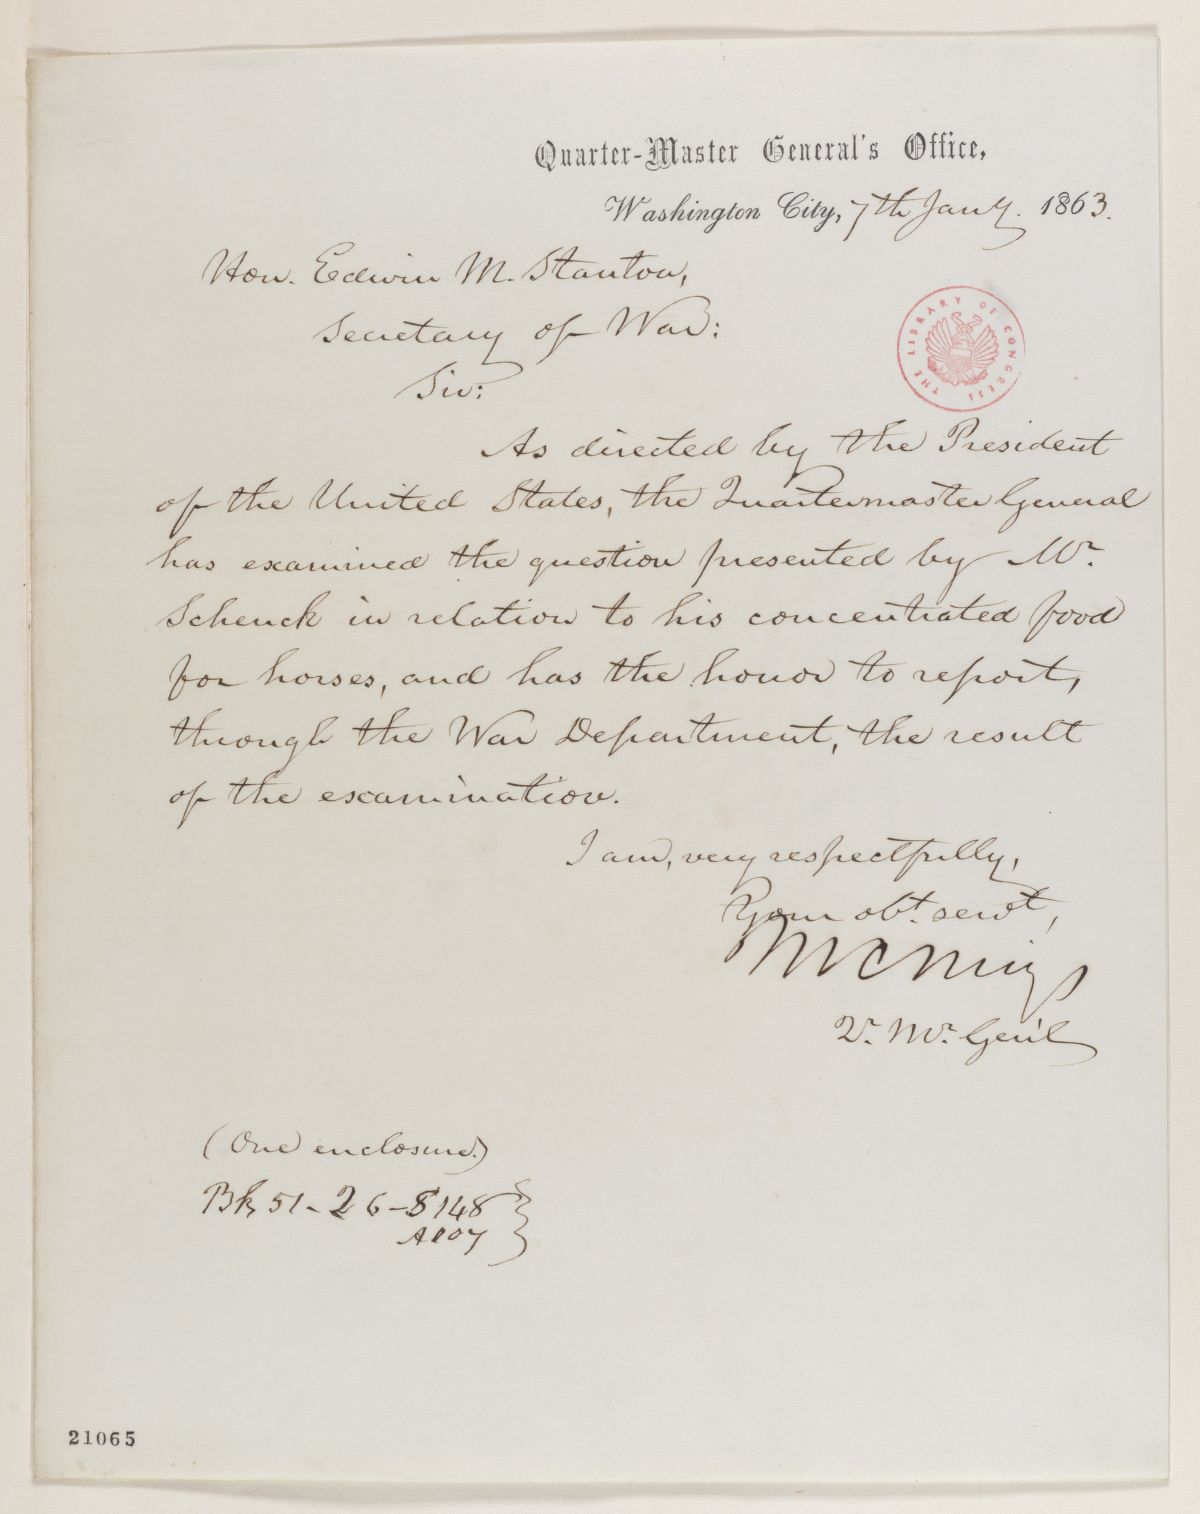 Quarter-Master General's Office,
Washington City, 7th Jany. 1863.
Hon. Edwin M. Stanton,
Secretary of War:
Sir:
THE LIBRARY OF CONGRESS
As directed by the President
of the United States, the Quartermaster General
has examined the question presented by Mr.
Schenck in relation to his concentrated food
for horses, and has the honor to report,
through the War Department, the result
of the examination.
I am, very respectfully,
Your obt. servt,
M C Meigs
Qr. Mr. Gen'l
(One enclosure.)
Bk 51 - 26 - S 148
21065